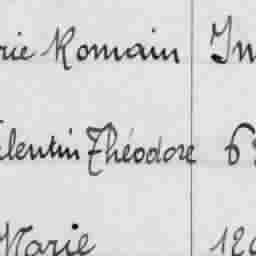 rie Romain In
lentin Théodore 6
Marie 120